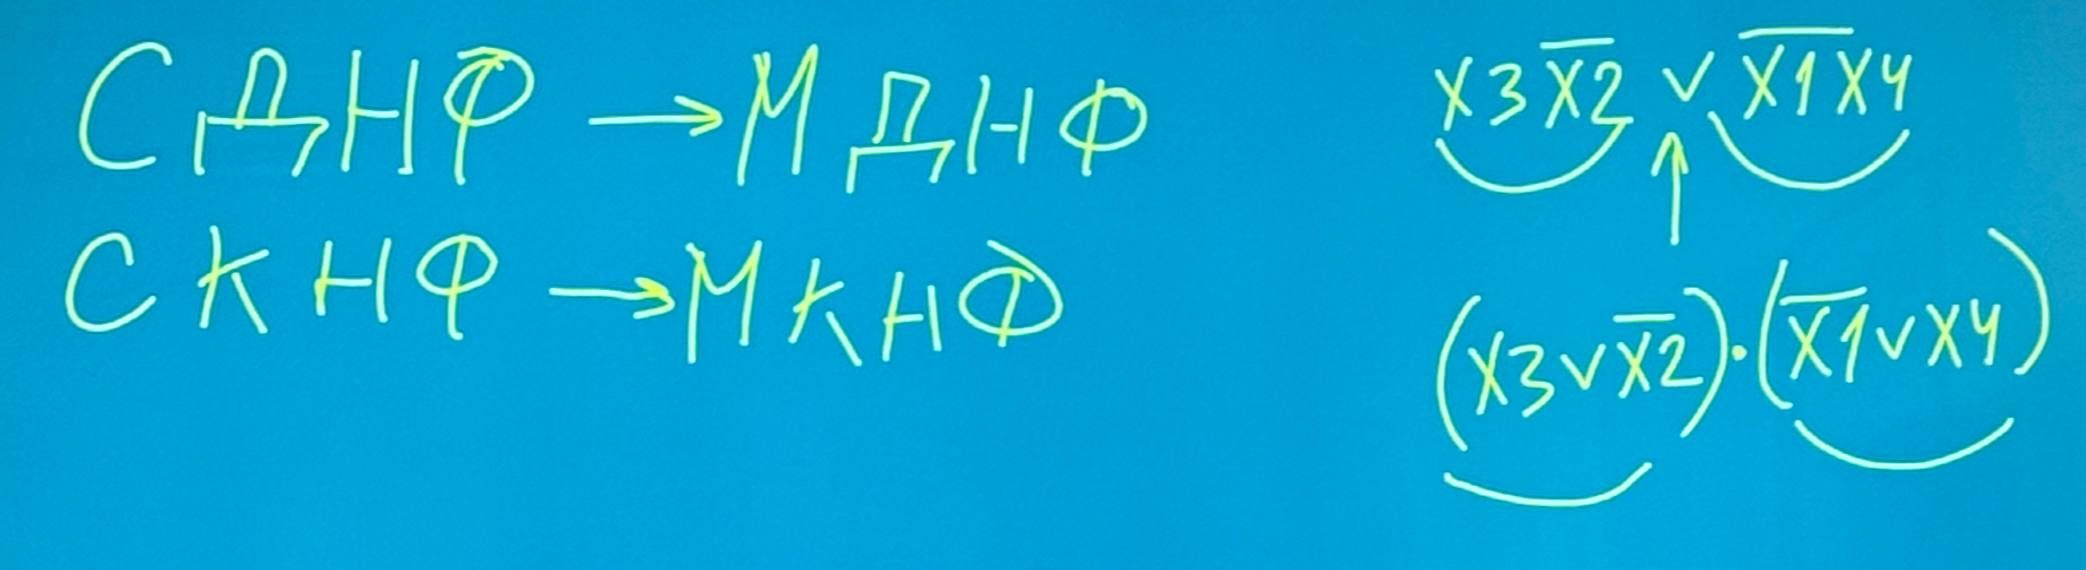 СДНФ → МДНФ
СКНФ → МКНФ
x3x̅2̅ ∨ x̅1̅x4
(x3∨x̅2̅)·(x̅1̅∨x4)